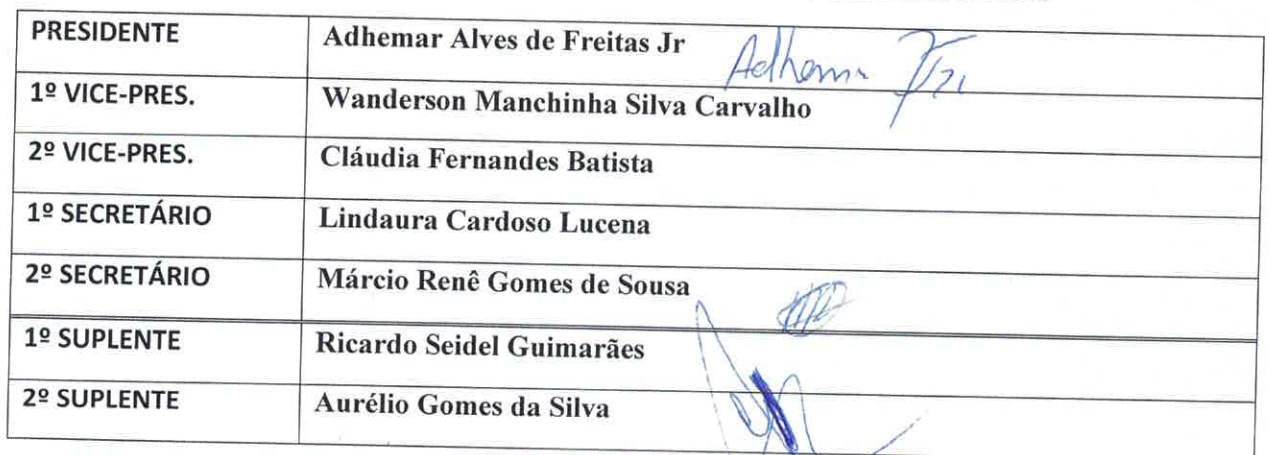 PRESIDENTE Adhemar Alves de Freitas Jr
Adhemar
1º VICE-PRES. Wanderson Manchinha Silva Carvalho
2º VICE-PRES. Cláudia Fernandes Batista
1º SECRETÁRIO Lindaura Cardoso Lucena
2º SECRETÁRIO Márcio Renê Gomes de Sousa
1º SUPLENTE Ricardo Seidel Guimarães
2º SUPLENTE Aurélio Gomes da Silva